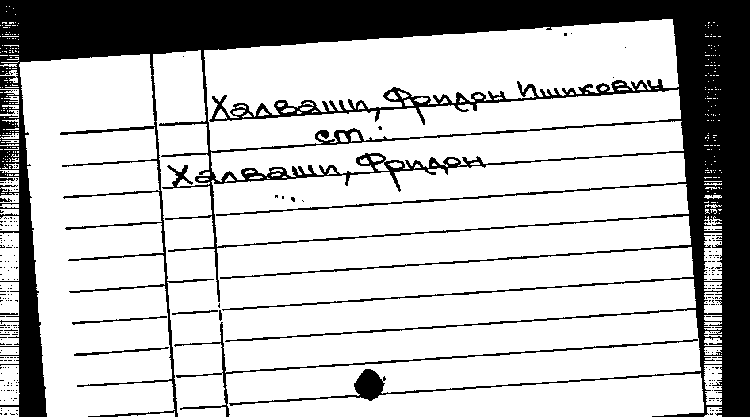 Халваши, Фридон Ишикович
ст.:
Халваши, Фридон